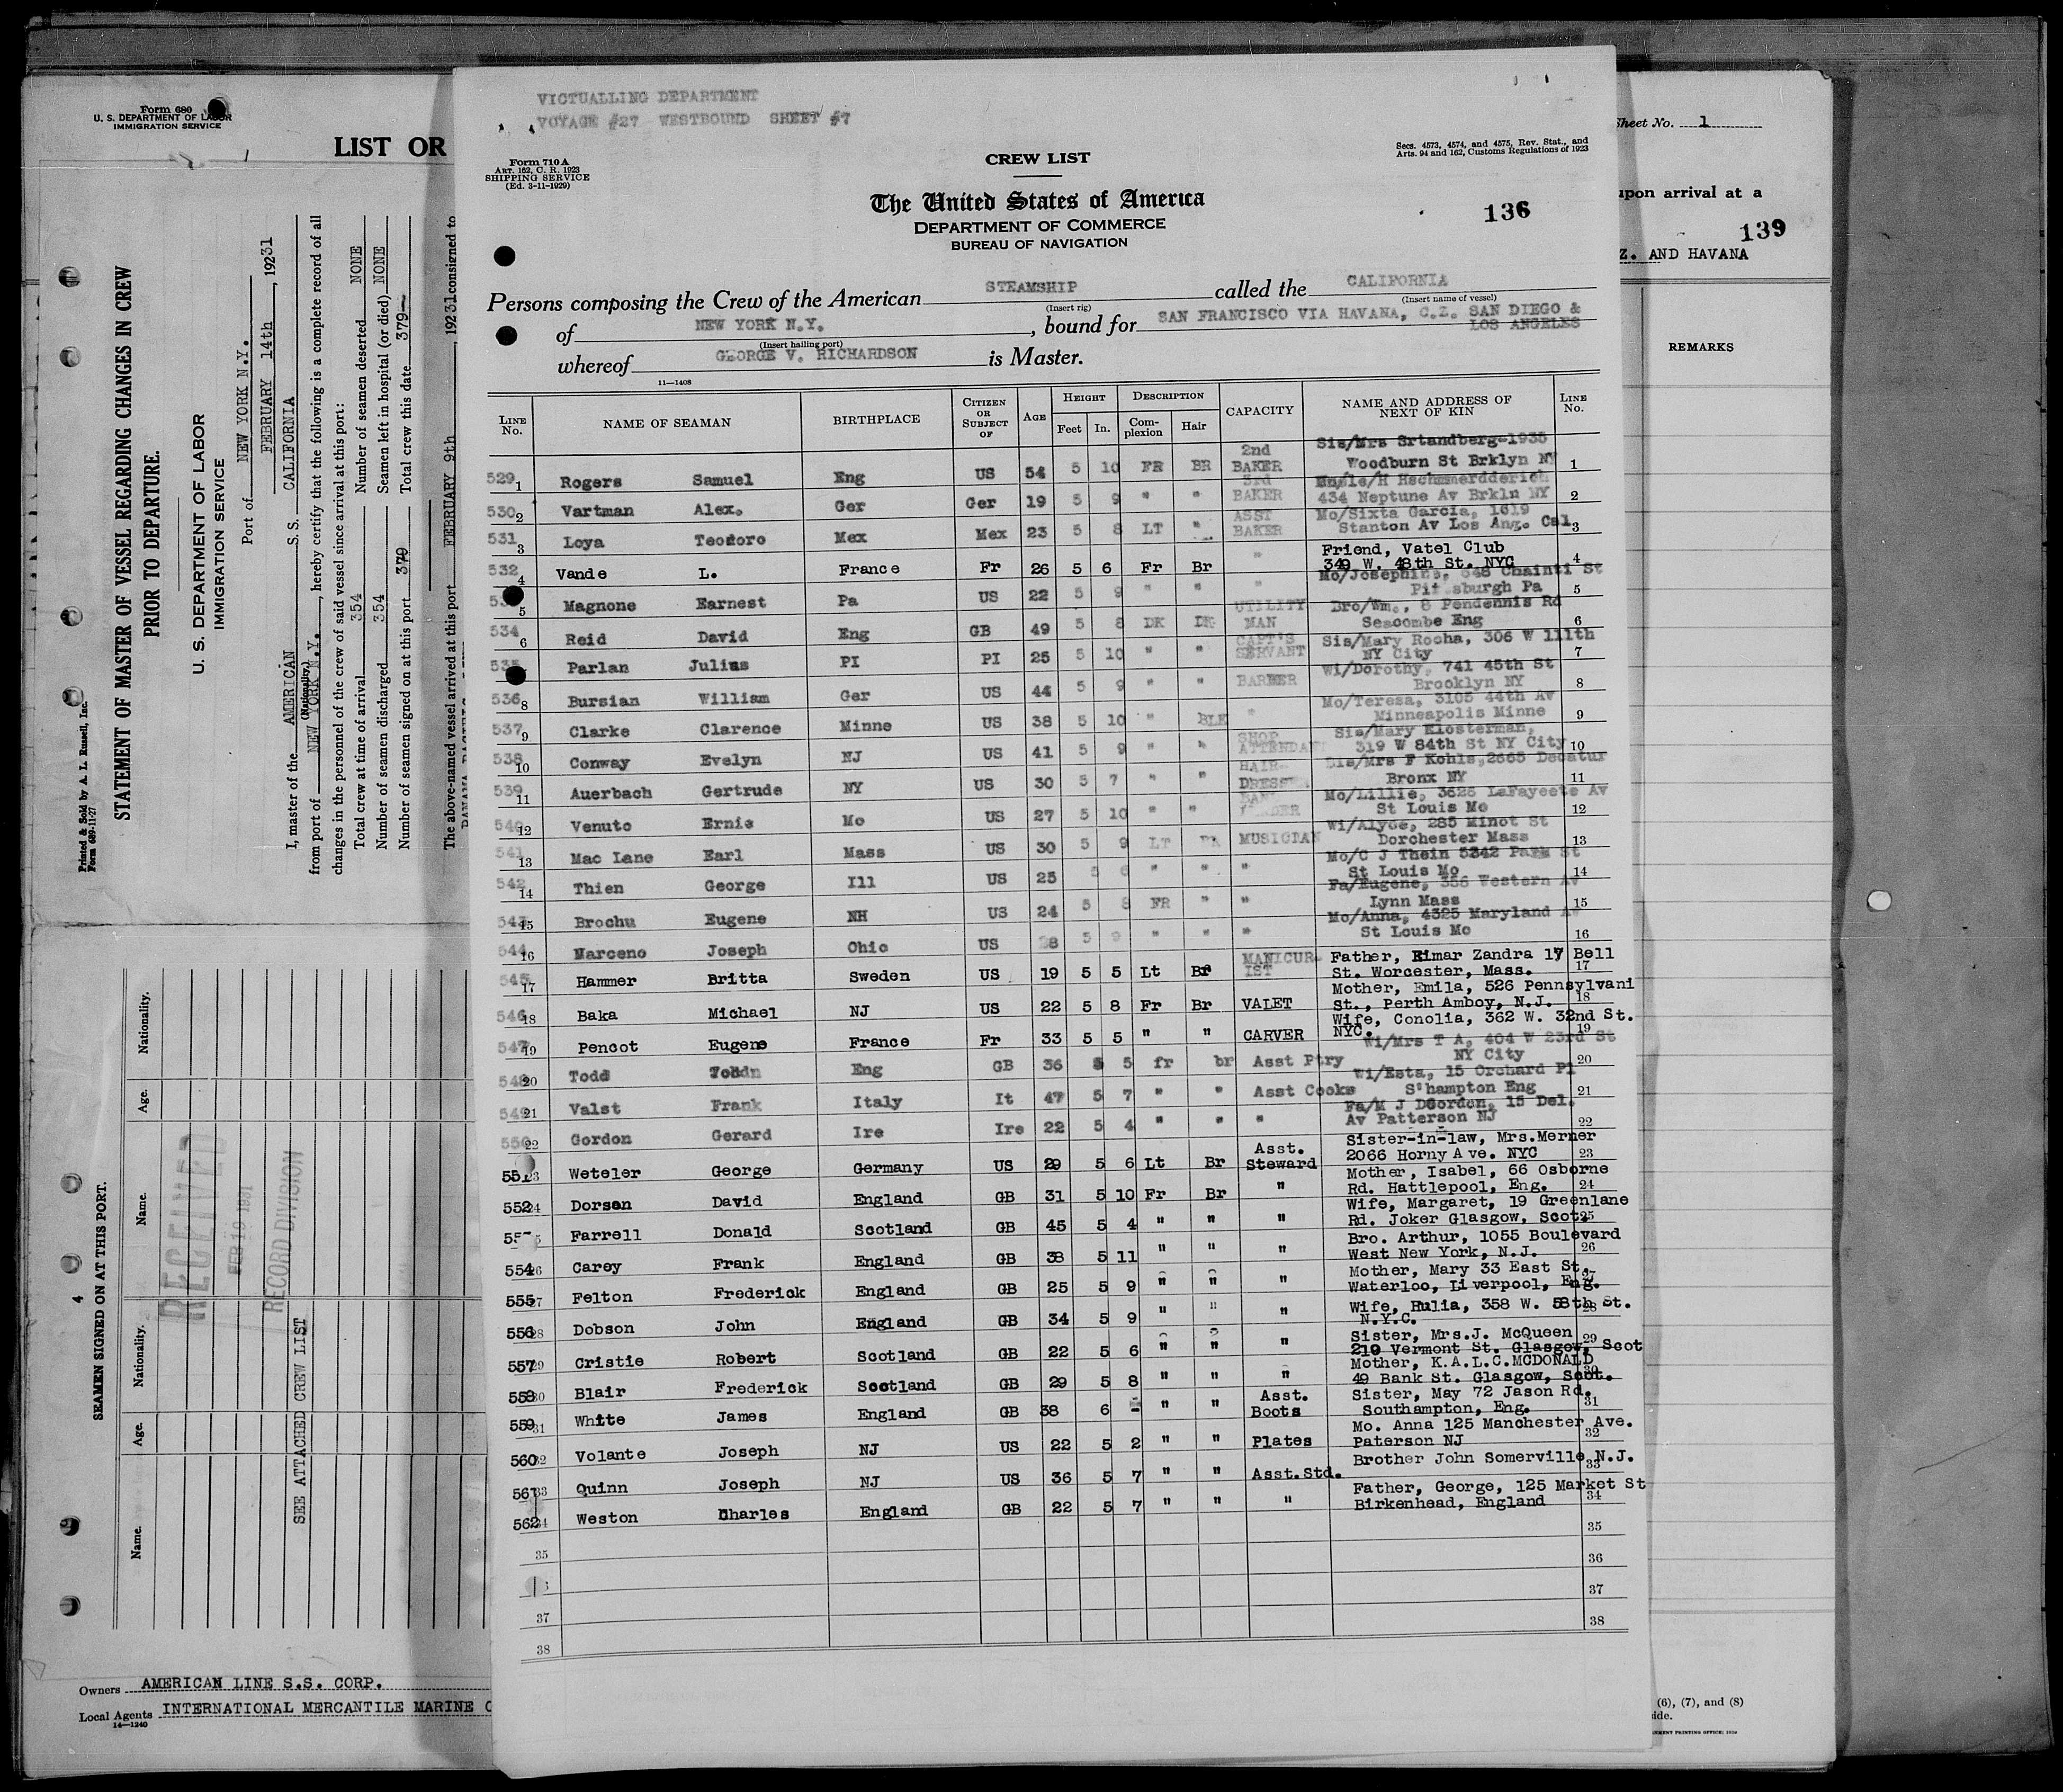 Form 689
U. S. DEPARTMENT OF LABOR
IMMIGRATION SERVICE
LIST OR
Printed & Sold by A. L. Russell, Inc.
Form 689-11-27
STATEMENT OF MASTER OF VESSEL REGARDING CHANGES IN CREW
PRIOR TO DEPARTURE.
U. S. DEPARTMENT OF LABOR
IMMIGRATION SERVICE
Port of NEW YORK N.Y.
FEBRUARY 14th, 1931
I, master of the AMERICAN S. S. CALIFORNIA
(Nationality.)
from port of NEW YORK N.Y., hereby certify that the following is a complete record of all
changes in the personnel of the crew of said vessel since arrival at this port:
Total crew at time of arrival 354 Number of seamen deserted NONE
Number of seamen discharged 354 Seamen left in hospital (or died) NONE
Number of seamen signed on at this port 379 Total crew this date 379
The above-named vessel arrived at this port FEBRUARY 9th, 1931 consigned to
SEAMEN SIGNED ON AT THIS PORT.
4
Name. Age. Nationality. Name. Age. Nationality.
SEE ATTACHED CREW LIST
RECEIVED
FEB 19 1931
RECORD DIVISION
Owners AMERICAN LINE S.S. CORP.
Local Agents INTERNATIONAL MERCANTILE MARINE C
14—1240
VICTUALLING DEPARTMENT
VOYAGE #27 WESTBOUND SHEET #7
Form 710 A
Art. 162, C. R. 1923
SHIPPING SERVICE
(Ed. 3-11-1929)
Secs. 4573, 4574, and 4575, Rev. Stat., and
Arts. 94 and 162, Customs Regulations of 1923
CREW LIST
The United States of America
DEPARTMENT OF COMMERCE
BUREAU OF NAVIGATION
136
Persons composing the Crew of the American STEAMSHIP called the CALIFORNIA
(Insert rig) (Insert name of vessel)
of NEW YORK N.Y., bound for SAN FRANCISCO VIA HAVANA, C.Z. SAN DIEGO &
LOS ANGELES
(Insert hailing port)
whereof GEORGE V. RICHARDSON is Master.
11—1408
LINE No. NAME OF SEAMAN BIRTHPLACE CITIZEN OR SUBJECT OF AGE HEIGHT Feet In. DESCRIPTION Complexion Hair CAPACITY NAME AND ADDRESS OF NEXT OF KIN LINE No.
529 1 Rogers Samuel Eng US 54 5 10 FR BR 2nd BAKER Sis/Mrs Srtandberg-1935 Woodburn St Brklyn NY 1
530 2 Vartman Alex. Ger Ger 19 5 9 " " 3rd BAKER 434 Neptune Av Brkln NY 2
531 3 Loya Teodoro Mex Mex 23 5 8 LT " ASST BAKER Mo/Sixta Garcia, 1619 Stanton Av Los Ang. Cal 3
532 4 Vande L. France Fr 26 5 6 Fr Br " Friend, Vatel Club 349 W. 48th St. NYC 4
5 Magnone Earnest Pa US 22 5 9 " " " Mo/Josephine, 648 Chainti St Pittsburgh Pa 5
534 6 Reid David Eng GB 49 5 8 DK DK UTILITY MAN Bro/Wm., 8 Pendennis Rd Seacombe Eng 6
535 Parlan Julius PI PI 25 5 10 " " CAPT'S SERVANT Sis/Mary Rocha, 306 W 111th NY City 7
536 8 Bursian William Ger US 44 5 9 " " BARBER Wi/Dorothy, 741 45th St Brooklyn NY 8
537 9 Clarke Clarence Minne US 38 5 10 " BLK " Mo/Teresa, 3105 44th Av Minneapolis Minne 9
538 10 Conway Evelyn NJ US 41 5 9 " " SHOP ATTENDANT Sis/Mary Klosterman, 319 W 84th St NY City 10
539 11 Auerbach Gertrude NY US 30 5 7 " " HAIR DRESS Sis/Mrs F Kohls, 2665 Decatur Bronx NY 11
540 12 Venuto Ernie Mo US 27 5 10 " " Mo/Lillie, 3625 LaFayeete Av St Louis Mo 12
541 13 Mac Lane Earl Mass US 30 5 9 LT DK MUSICIAN Wi/Alyce, 285 Minot St Dorchester Mass 13
542 14 Thien George Ill US 25 5 6 " " " Mo/C J Thein 5342 Park St St Louis Mo 14
543 15 Brochu Eugene NH US 24 5 8 FR " " Fa/Eugene, 356 Western Av Lynn Mass 15
544 16 Marceno Joseph Ohio US 28 5 9 " " " Mo/Anna, 4325 Maryland Av St Louis Mo 16
545 17 Hammer Britta Sweden US 19 5 5 Lt Br MANICURIST Father, Elmar Zandra 17 Bell St. Worcester, Mass. 17
546 18 Baka Michael NJ US 22 5 8 Fr Br VALET Mother, Emila, 526 Pennsylvani St., Perth Amboy, N.J. 18
547 19 Pencot Eugene France Fr 33 5 5 " " CARVER Wife, Conolia, 362 W. 32nd St. NYC. 19
548 20 Todd Eng GB 36 5 5 fr br Asst Ptry Wi/Mrs T A, 404 W 23rd St NY City 20
549 21 Valst Frank Italy It 47 5 7 " " Asst Cooks Wi/Esta, 15 Orchard Pl S'hampton Eng 21
550 22 Gordon Gerard Ire Ire 22 5 4 " " " Fa/M J DGordon, 15 Del. Av Patterson NJ 22
551 23 Weteler George Germany US 29 5 6 Lt Br Asst. Steward Sister-in-law, Mrs.Merner 2066 Horny Ave. NYC 23
552 24 Dorsen David England GB 31 5 10 Fr Br " Mother, Isabel, 66 Osborne Rd. Hattlepool, Eng. 24
Farrell Donald Scotland GB 45 5 4 " " " Wife, Margaret, 19 Greenlane Rd. Joker Glasgow, Scot. 25
554 26 Carey Frank England GB 38 5 11 " " " Bro. Arthur, 1055 Boulevard West New York, N.J. 26
555 27 Felton Frederick England GB 25 5 9 " " " Mother, Mary 33 East St. Waterloo, Liverpool, Eng. 27
556 28 Dobson John England GB 34 5 9 " " " Wife, Hulia, 358 W. 58th St. N.Y.C. 28
557 29 Cristie Robert Scotland GB 22 5 6 " " " Sister, Mrs.J. McQueen 219 Vermont St. Glasgow, Scot 29
558 30 Blair Frederick Scotland GB 29 5 8 " " " Mother, K.A.L.C.MCDONALD 49 Bank St. Glasgow, Scot. 30
559 31 White James England GB 38 6 - " " Asst. Boots Sister, May 72 Jason Rd. Southampton, Eng. 31
560 32 Volante Joseph NJ US 22 5 2 " " Plates Mo. Anna 125 Manchester Ave. Paterson NJ 32
561 33 Quinn Joseph NJ US 36 5 7 " " Asst.Std. Brother John Somerville N.J. 33
562 34 Weston Charles England GB 22 5 7 " " " Father, George, 125 Market St Birkenhead, England 34
35 35
36
37 37
38 38
Sheet No. 1
upon arrival at a
139
Z. AND HAVANA
REMARKS
(6), (7), and (8)
ide.